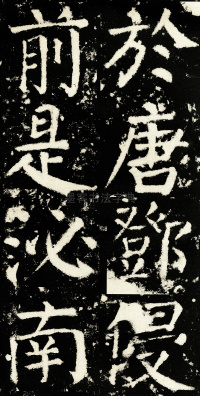 於唐鄧侵
前是泌南